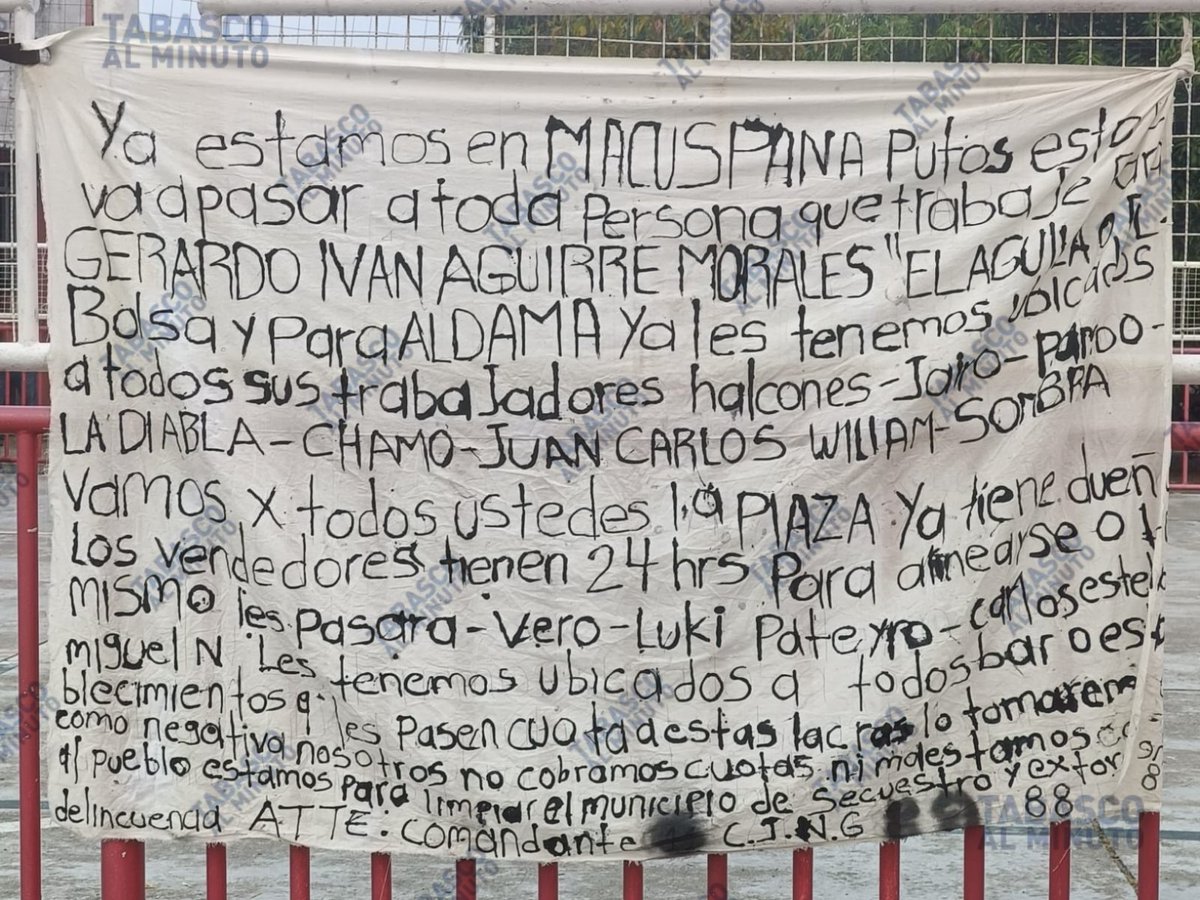 TABASCO
AL MINUTO
Ya estamos en MACUSPANA Putos esto
va a pasar a toda Persona que trabaje
GERARDO IVAN AGUIRRE MORALES "EL AGUILA
Bolsa y Para ALDAMA Ya les tenemos
a todos sus trabajadores halcones-Jaro-
LA DIABLA-CHAMO-JUAN CARLOS WILLIAM-SOMBRA
Vamos x todos ustedes la PLAZA Ya tiene dueñ
Los vendedores tienen 24 hrs Para alinearse o
mismo les Pasara-Vero-Luki Pateyro-carlos
miguel N Les tenemos ubicados a todos bar o
blecimientos q les Pasen cuota a estas lacras lo
como negativa nosotros no cobramos cuotas ni molestamos
al pueblo estamos Para limpiar el municipio de secuestro y
delincuencia ATTE: comandante C.J.N.G 88
TABASCO
AL MINUTO